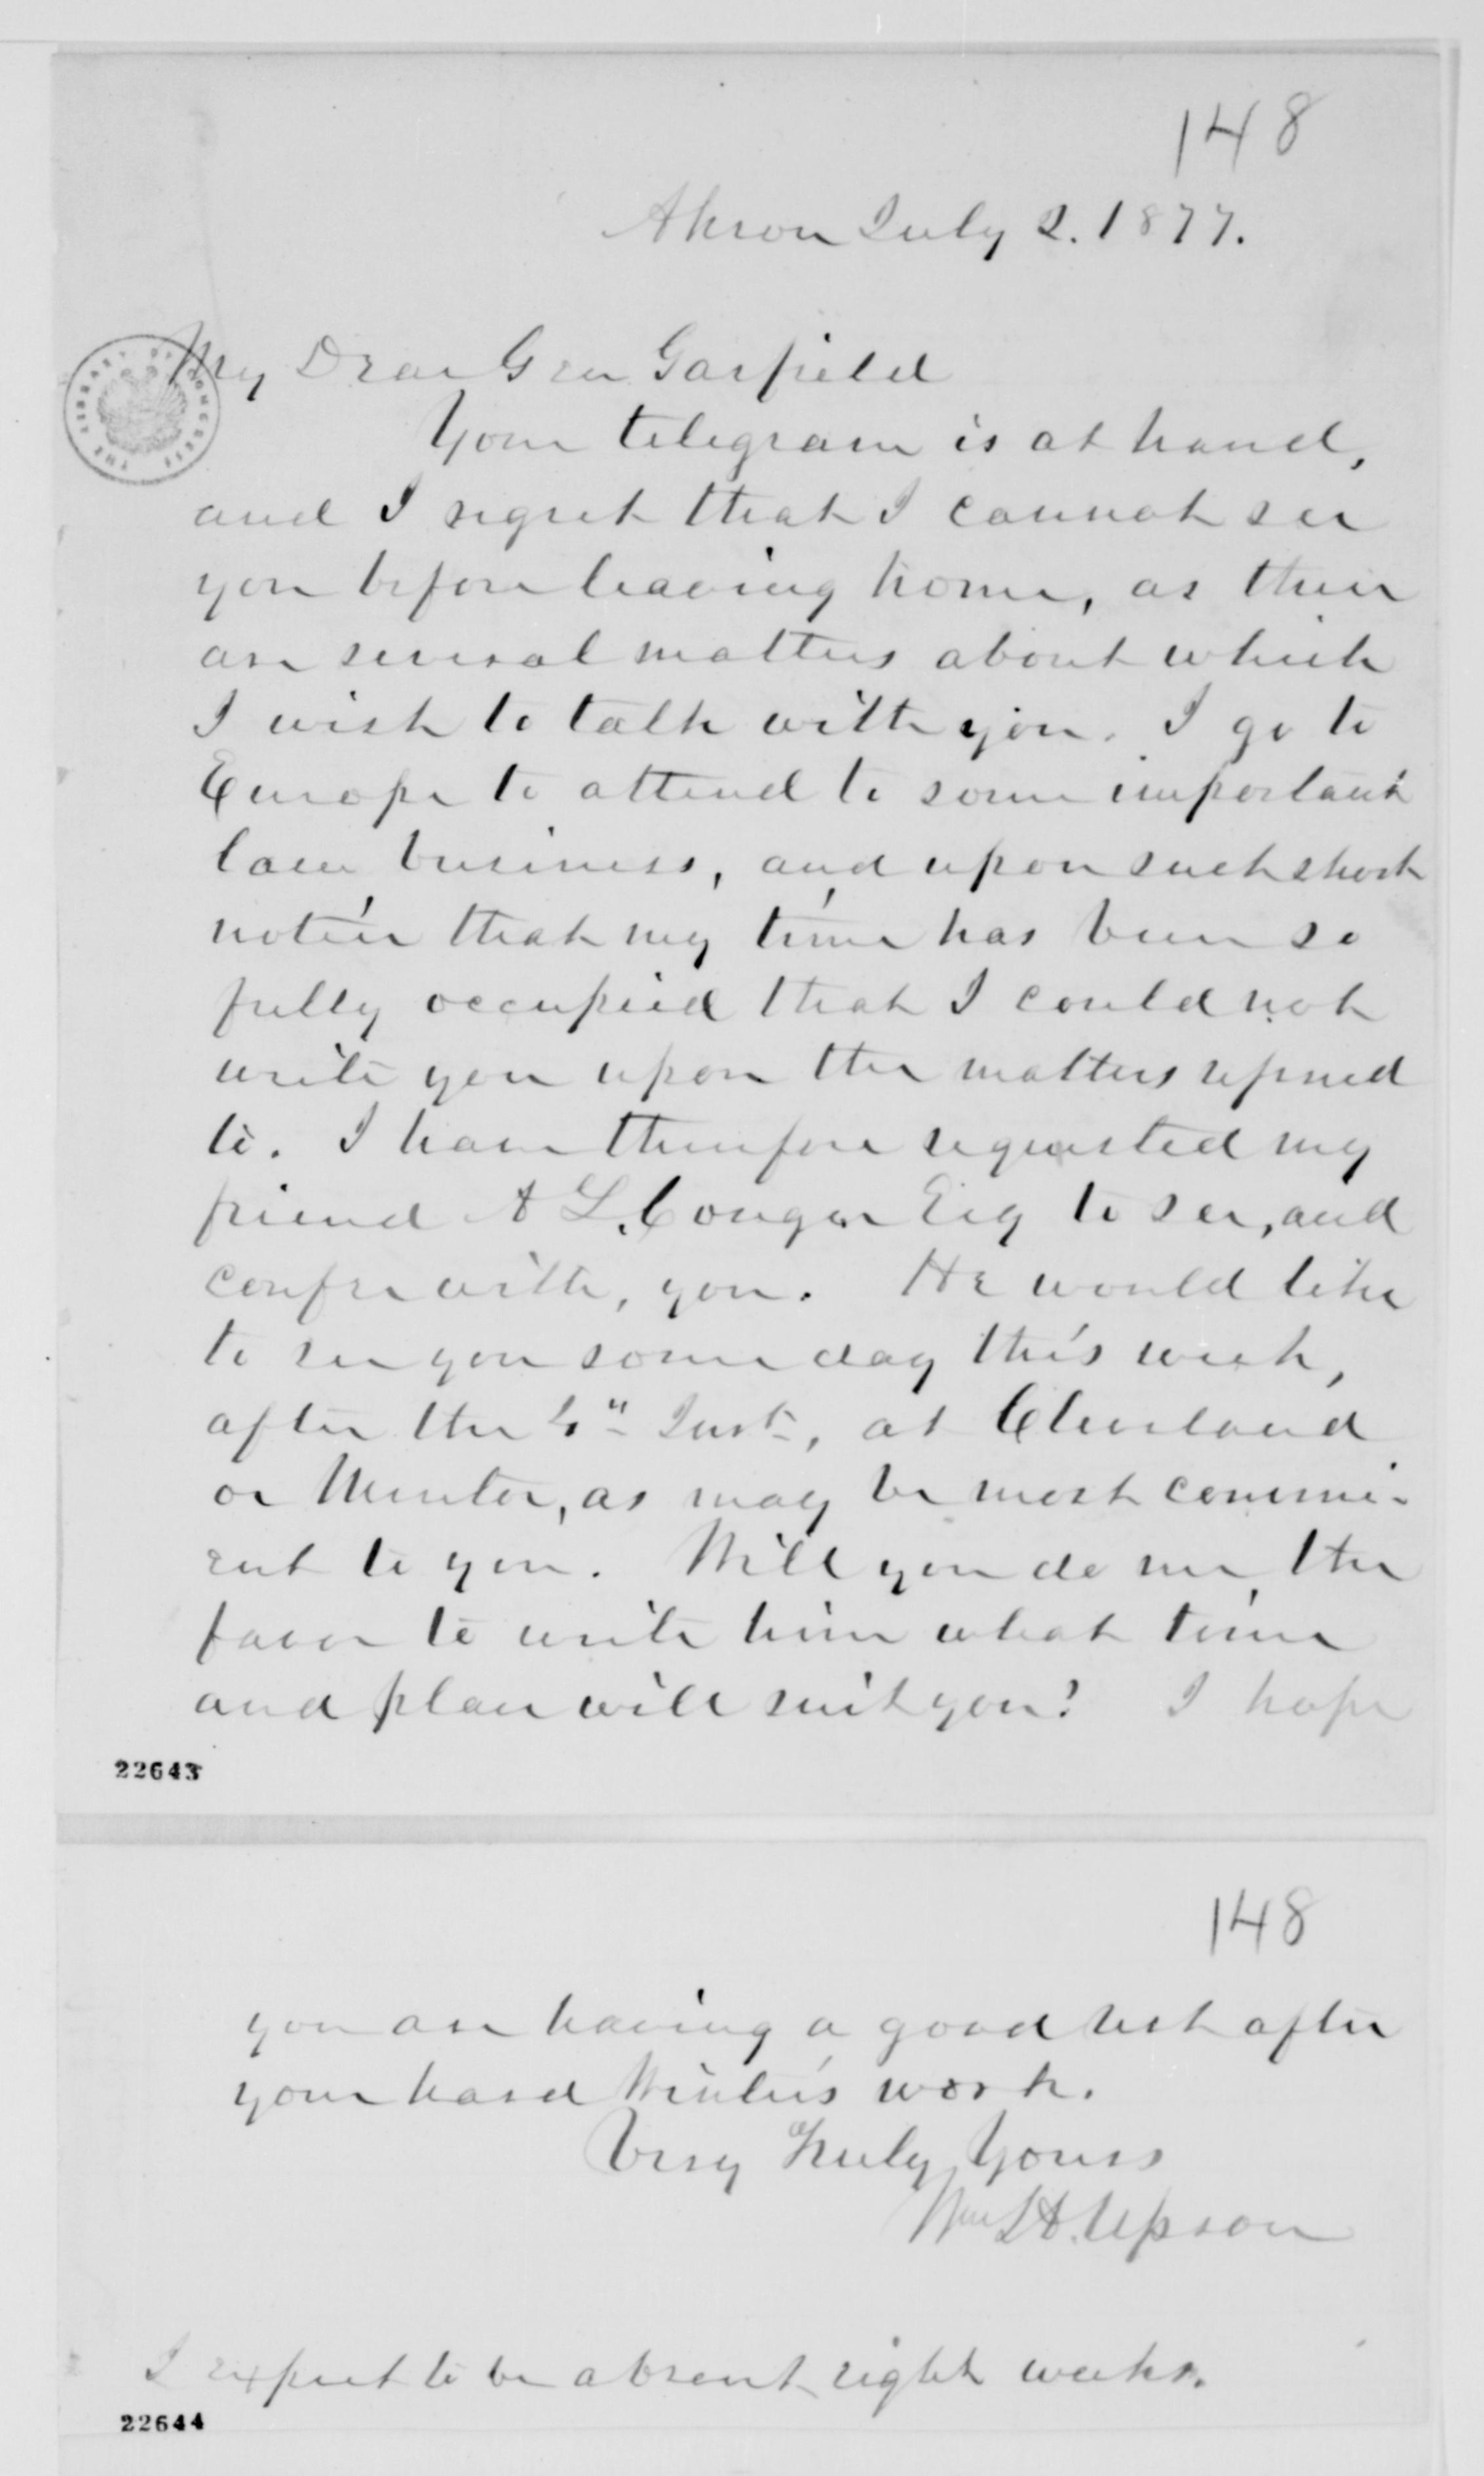 148
Akron July 2. 1877.
My Dear Gen Garfield
THE LIBRARY OF CONGRESS
Your telegram is at hand,
and I regret that I cannot see
you before leaving home, as there
are several matters about which
I wish to talk with you. I go to
Europe to attend to some important
law business, and upon such short
notice that my time has been so
fully occupied that I could not
write you upon the matters referred
to. I have therefore requested my
friend A L. Conger Esq to see, and
confer with, you. He would like
to see you some day this week,
after the 4" Inst, at Cleveland
or Mentor, as may be most conveni-
ent to you. Will you do me, the
favor to write him what time
and place will suit you? I hope
22643
148
you are having a good rest after
your hard Winter's work.
Very Truly Yours
Wm H. Upson
I expect to be absent eight weeks.
22644